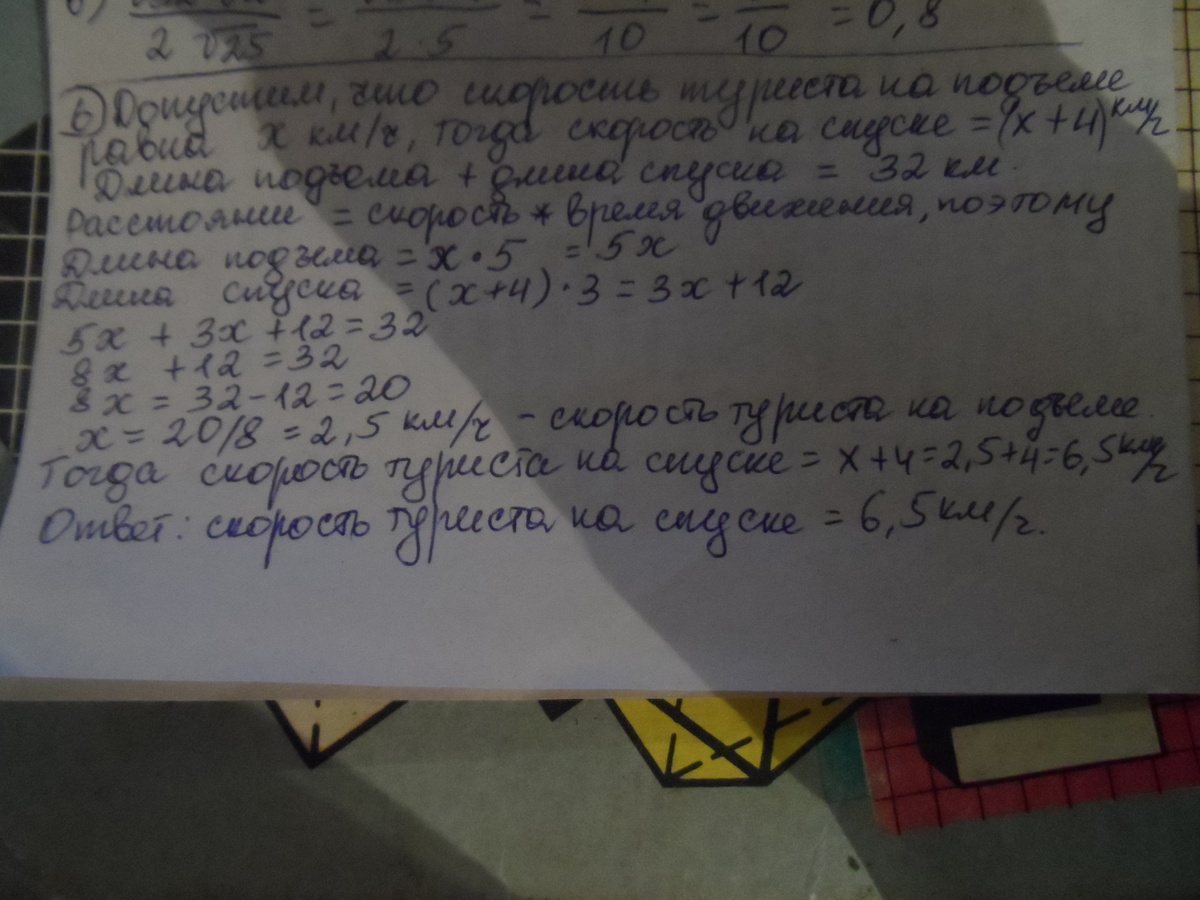 2√25 = 2·5 = 10 = 10 = 0,8
6) Допустим, что скорость туриста на подъеме
равна x км/ч, тогда скорость на спуске = (x+4) км/ч
Длина подъема + длина спуска = 32 км.
Расстояние = скорость * время движения, поэтому
Длина подъема = x·5 = 5x
Длина спуска = (x+4)·3 = 3x+12
5x + 3x +12 = 32
8x +12 = 32
8x = 32-12 = 20
x = 20/8 = 2,5 км/ч - скорость туриста на подъеме.
Тогда скорость туриста на спуске = x+4=2,5+4=6,5 км/ч
Ответ: скорость туриста на спуске = 6,5 км/ч.